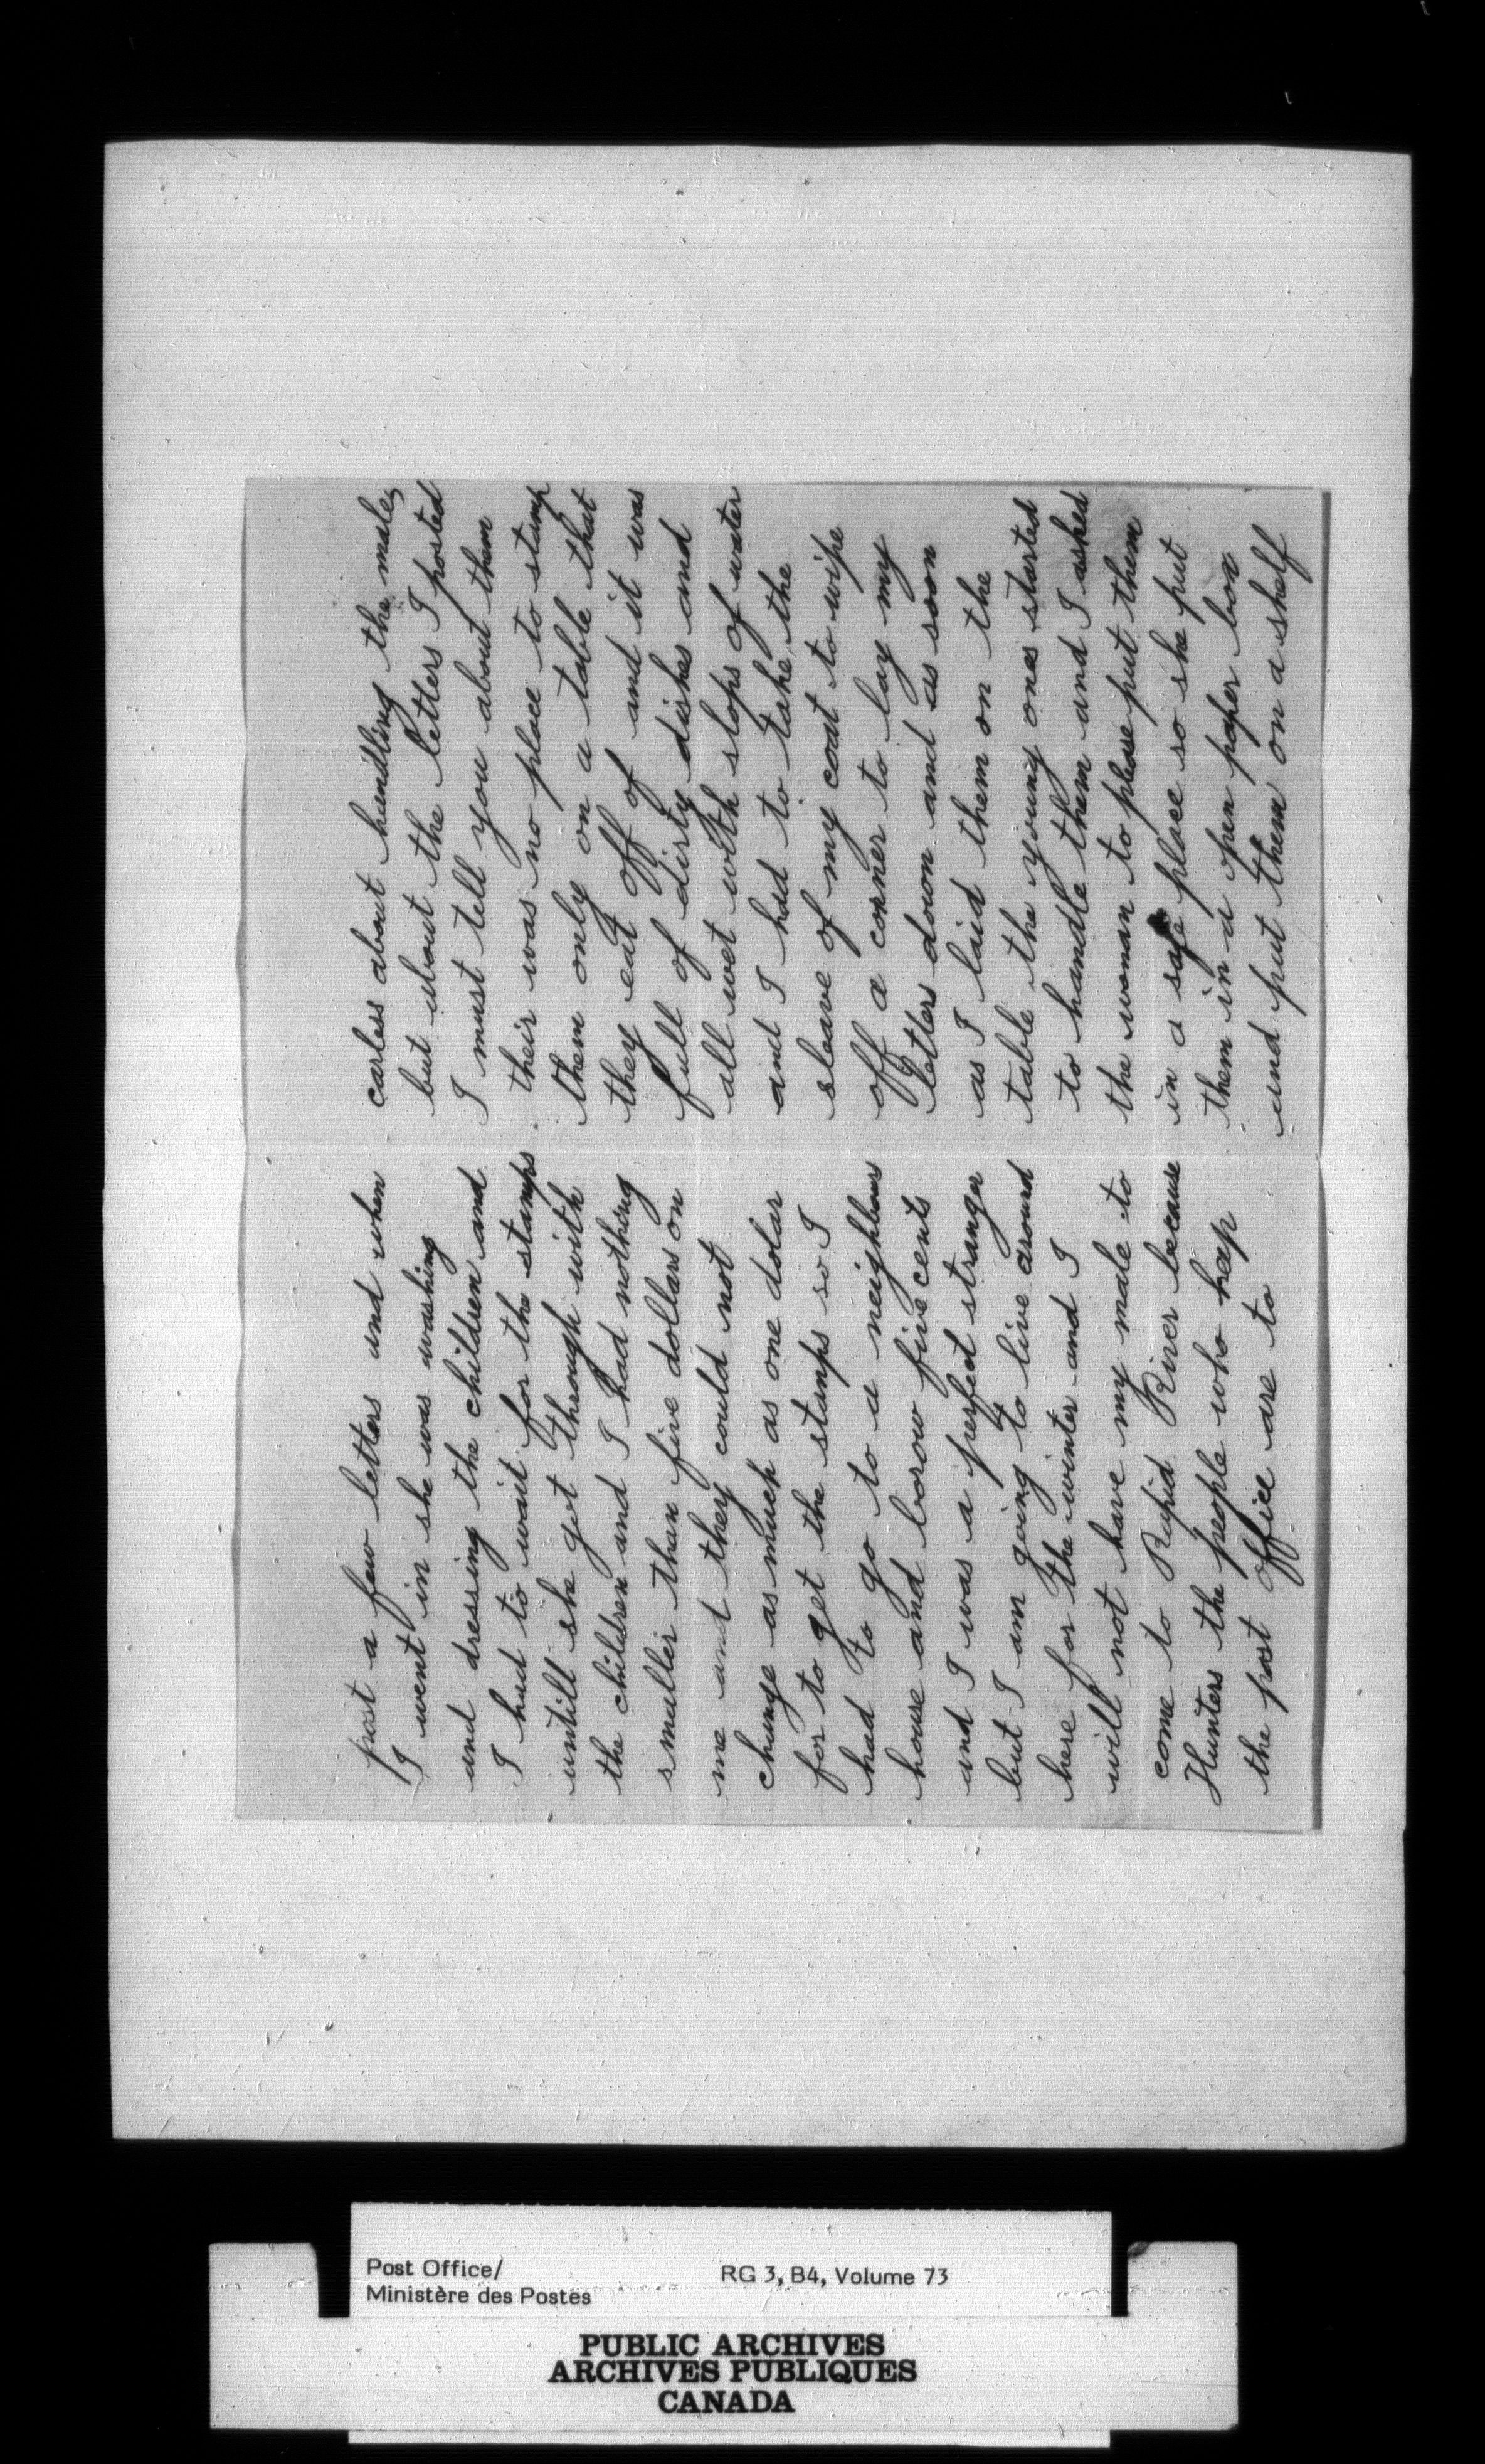 post a few letters and when
I went in she was washing
and dressing the children and
I had to wait for the stamps
untill she got through with
the children and I had nothing
smaller than five dollars on
me and they could not
change as much as one dolar
for to get the stamps so I
had to go to a neighbours
house and borow five cents
and I was a perfect stranger
but I am going to live around
here for the winter and I
will not have my male to
come to Rapid River because
Hunters the people who keap
the post office are to
carless about handling the males
but about the letters I posted
I must tell you about them
their was no place to stamp
them only on a table that
they eat off of and it was
full of dirty dishes and
all wet with slops of water
and I had to take the
sleave of my coat to wipe
off a corner to lay my
letters down and as soon
as I laid them on the
table the young ones started
to handle them and I asked
the woman to please put them
in a safe place so she put
them in a open paper box
and put them on a shelf
Post Office/
Ministère des Postes
RG 3, B4, Volume 73
PUBLIC ARCHIVES
ARCHIVES PUBLIQUES
CANADA